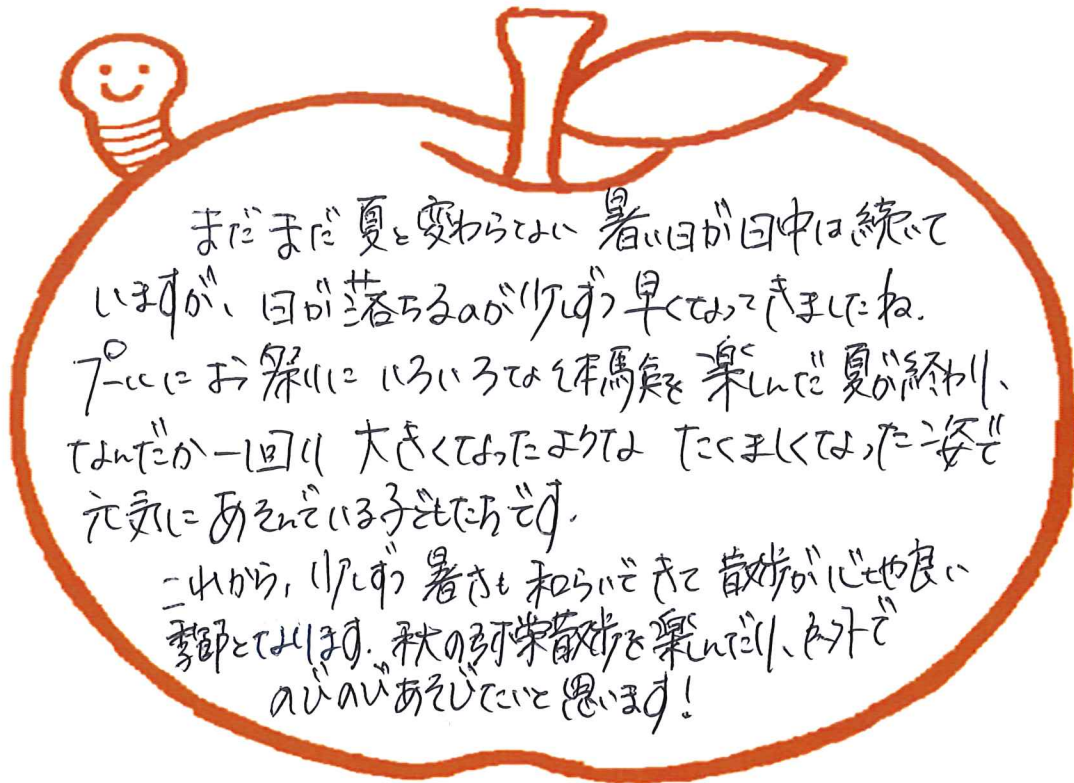 まだまだ夏と変わらない暑い日が日中は続いて
いますが、日が落ちるのが少しずつ早くなってきましたね。
プールにお祭りにいろいろな体験を楽しんだ夏が終わり、
なんだか一回り大きくなったような たくましくなった姿で
元気にあそんでいる子どもたちです。
これから、少しずつ暑さも和らいできて散歩が心地良い
季節となります。秋の弥栄散歩を楽しんだり、戸外で
のびのびあそびたいと思います!